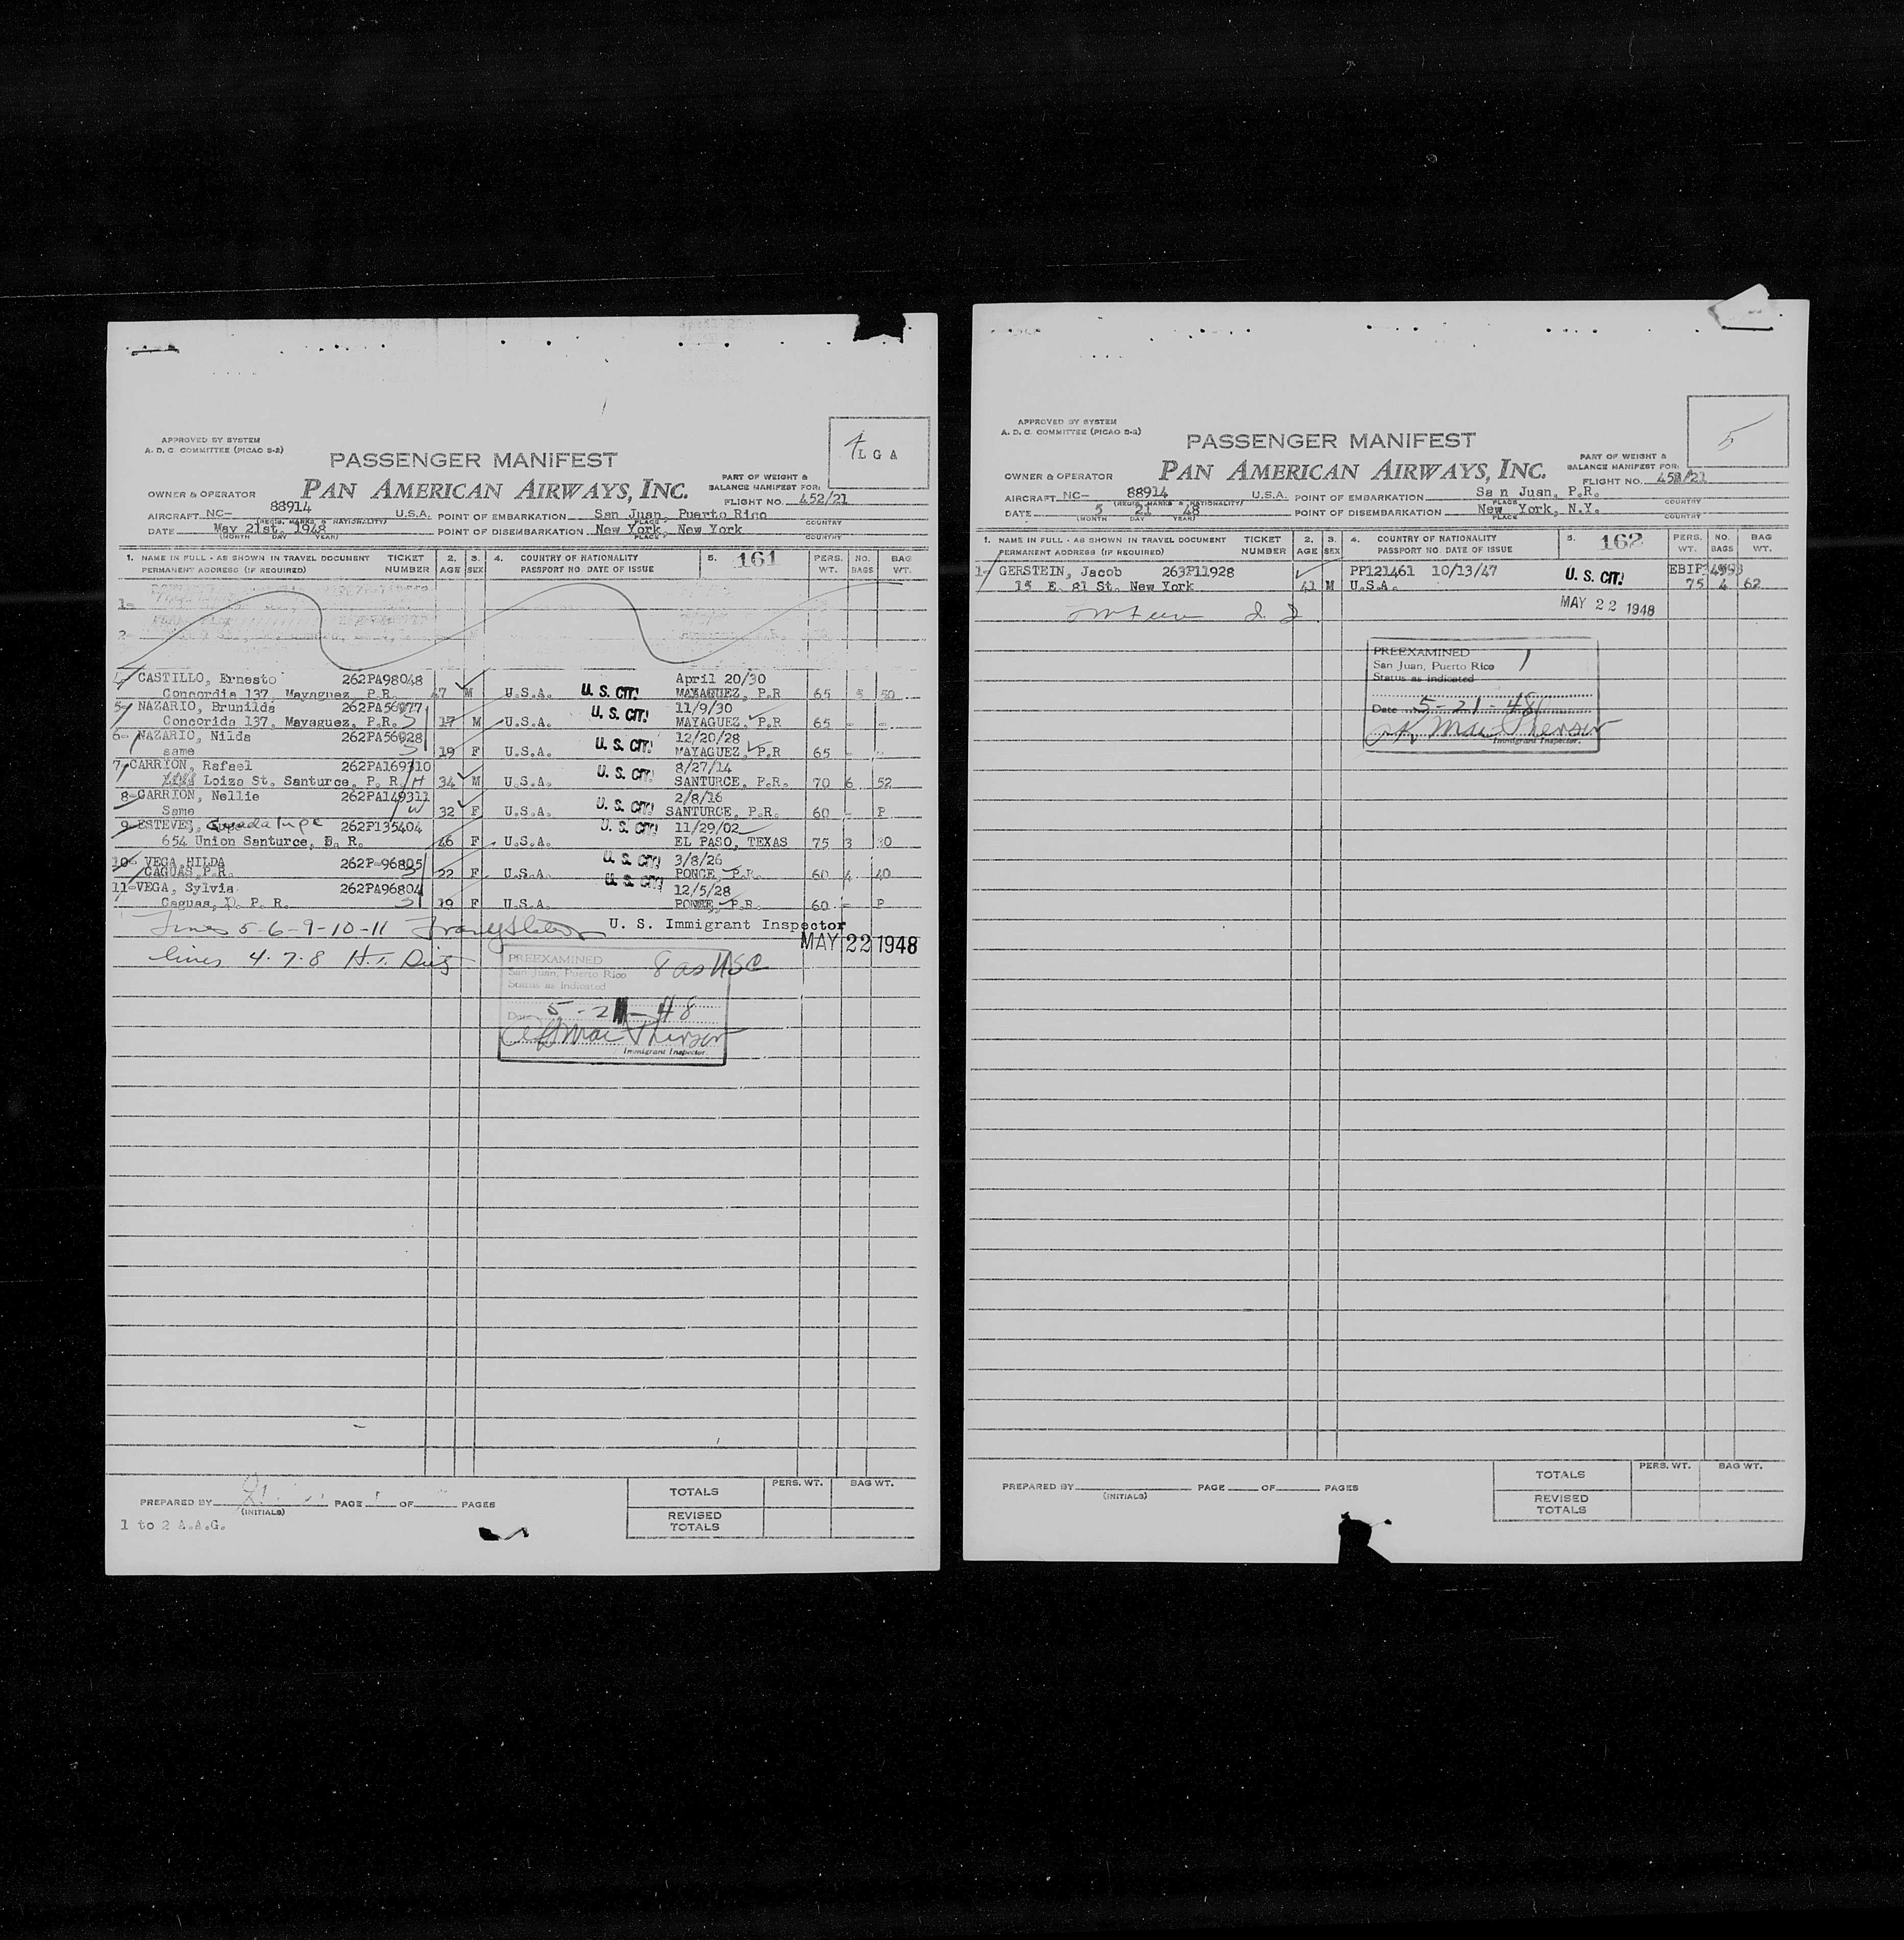 APPROVED BY SYSTEM
A. D. C. COMMITTEE (PICAO S-2)
4 L G A
PASSENGER MANIFEST
PART OF WEIGHT &
BALANCE MANIFEST FOR:
OWNER & OPERATOR PAN AMERICAN AIRWAYS, INC.
FLIGHT NO. 452/21
AIRCRAFT NC- 88914 U.S.A. POINT OF EMBARKATION San Juan, Puerto Rico
(REGIS. MARKS & NATIONALITY) PLACE COUNTRY
DATE May 21st, 1948 POINT OF DISEMBARKATION New York, New York
(MONTH DAY YEAR) PLACE COUNTRY
1. NAME IN FULL - AS SHOWN IN TRAVEL DOCUMENT TICKET 2. 3. 4. COUNTRY OF NATIONALITY 5. 161 PERS. NO. BAG
PERMANENT ADDRESS (IF REQUIRED) NUMBER AGE SEX PASSPORT NO. DATE OF ISSUE WT. BAGS WT.
1-
2-
4- CASTILLO, Ernesto 262PA98048 April 20/30
Concordia 137, Mayaguez, P.R. 47 M U.S.A. U. S. CIT. MAYAGUEZ, P.R 65 5 50
5- NAZARIO, Brunilda 262PA56077 11/9/30
Concorida 137, Mayaguez, P.R. S 17 M U.S.A. U. S. CIT. MAYAGUEZ, P.R 65 - -
6- NAZARIO, Nilda 262PA56028 12/20/28
same S 19 F U.S.A. U. S. CIT. MAYAGUEZ, P.R 65 - -
7 CARRION, Rafael 262PA169310 8/27/14
Loiza St. Santurce, P. R. H 34 M U.S.A. U. S. CIT. SANTURCE, P.R. 70 6 52
8- CARRION, Nellie 262PA149311 2/8/16
Same W 32 F U.S.A. U. S. CIT. SANTURCE, P.R. 60 - P
9- ESTEVES, Guadalupe 262P135404 11/29/02
654 Union Santurce, P. R. 46 F U.S.A. U. S. CIT. EL PASO, TEXAS 75 3 30
10- VEGA, HILDA 262P-96805 3/8/26
CAGUAS, P.R. 22 F U.S.A. U. S. CIT. PONCE, P.R. 60 4 40
11- VEGA, Sylvia 262PA96804 12/5/28
Caguas, P. R. S 19 F U.S.A. U. S. CIT. PONCE, P.R. 60 - P
Lines 5-6-9-10-11 U. S. Immigrant Inspector
MAY 22 1948
lines 4. 7. 8
PREEXAMINED
San Juan, Puerto Rico 8 as USC
Status as Indicated
Date 5-21-48
Mac Pherson
Immigrant Inspector.
PREPARED BY PAGE OF PAGES
(INITIALS)
1 to 2 A.A.G.
PERS. WT. BAG WT.
TOTALS
REVISED
TOTALS
APPROVED BY SYSTEM
A. D. C. COMMITTEE (PICAO S-2)
5
PASSENGER MANIFEST
PART OF WEIGHT &
BALANCE MANIFEST FOR:
OWNER & OPERATOR PAN AMERICAN AIRWAYS, INC.
FLIGHT NO. 452/21
AIRCRAFT NC- 88914 U.S.A. POINT OF EMBARKATION Sa n Juan, P.R.
(REGIS. MARKS & NATIONALITY) PLACE COUNTRY
DATE 5 21 48 POINT OF DISEMBARKATION New York, N.Y.
(MONTH DAY YEAR) PLACE COUNTRY
1. NAME IN FULL - AS SHOWN IN TRAVEL DOCUMENT TICKET 2. 3. 4. COUNTRY OF NATIONALITY 5. 162 PERS. NO. BAG
PERMANENT ADDRESS (IF REQUIRED) NUMBER AGE SEX PASSPORT NO. DATE OF ISSUE WT. BAGS WT.
1- GERSTEIN, Jacob 263P11928 PP121461 10/13/47 U. S. CIT.
15 E. 81 St. New York 41 M U.S.A. 75 4 62
MAY 22 1948
PREEXAMINED
San Juan, Puerto Rico 1
Status as Indicated
Date 5-21-48
Mac Pherson
Immigrant Inspector.
PREPARED BY PAGE OF PAGES
(INITIALS)
PERS. WT. BAG WT.
TOTALS
REVISED
TOTALS